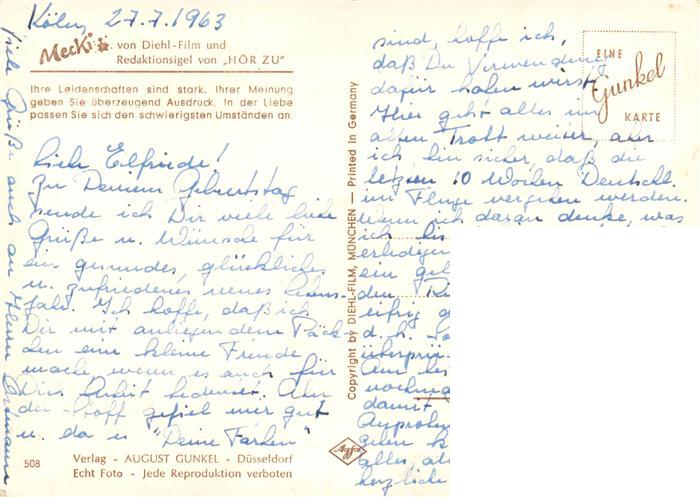 Köln, 27.7.1963
Mecki von Diehl-Film und
Redaktionsigel von „HÖR ZU"
Ihre Leidenschaften sind stark. Ihrer Meinung
geben Sie überzeugend Ausdruck. In der Liebe
passen Sie sich den schwierigsten Umständen an.
Liebe Elfriede!
Zu Deinem Geburtstag
sende ich Dir viele liebe
Grüße u. Wünsche für
ein gesundes, glückliches
u. zufriedenes neues Lebens-
jahr. Ich hoffe, daß ich
Dir mit anliegendem Päck-
chen eine kleine Freude
mache wenn es auch für
Dich Arbeit bedeutet. Aber
der Stoff gefiel mir gut
u. da u "Deine Farben"
508
Verlag - AUGUST GUNKEL - Düsseldorf
Echt Foto - Jede Reproduktion verboten
viele Grüße auch an Herrn
Copyright by DIEHL-FILM, MÜNCHEN — Printed in Germany
Agfa
EINE
Gunkel
KARTE
sind, hoffe ich,
daß Du Verwendung
dafür haben wirst.
Hier geht alles im
alten Trott weiter, aber
ich bin sicher, daß die
letzten 10 Wochen Deutschl.
im Fluge vergehen werden.
Wenn ich daran denke, was
ich bis
erledigen
ein
den
eifrig
d.h.
überprü-
Am
nochma
damit
Anproben
guten
alles,
herzliche